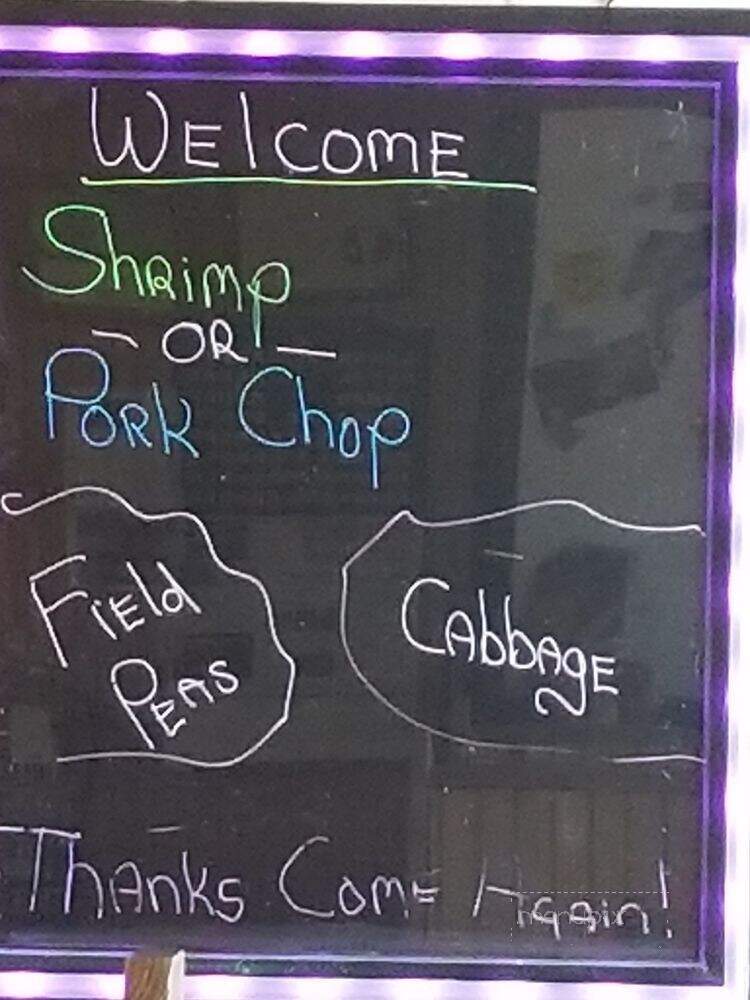 WElcomE
ShRimp
- OR -
PORK Chop
FiEld
PEAs
CAbbAgE
ThAnks ComE AgAin!
menupix